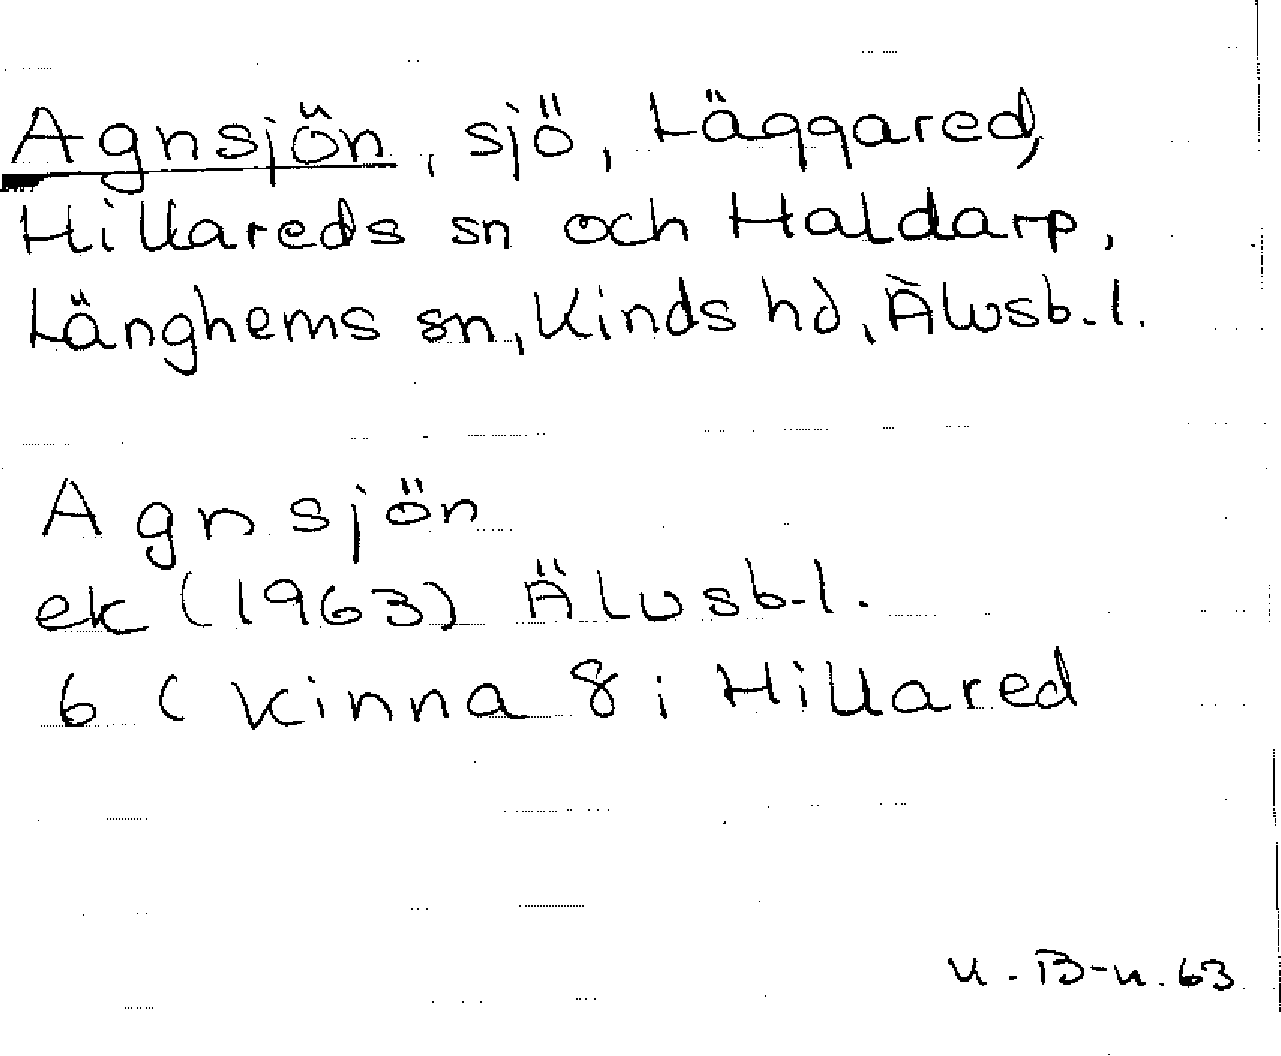 Agnsjön, sjö, Läggared,
Hillareds sn och Haldarp,
Länghems sn, Kinds hd, Älvsb. l.
Agnsjön
ek (1963) Älvsb. l.
6 ( Kinna 8 i Hillared
K. B-n. 63